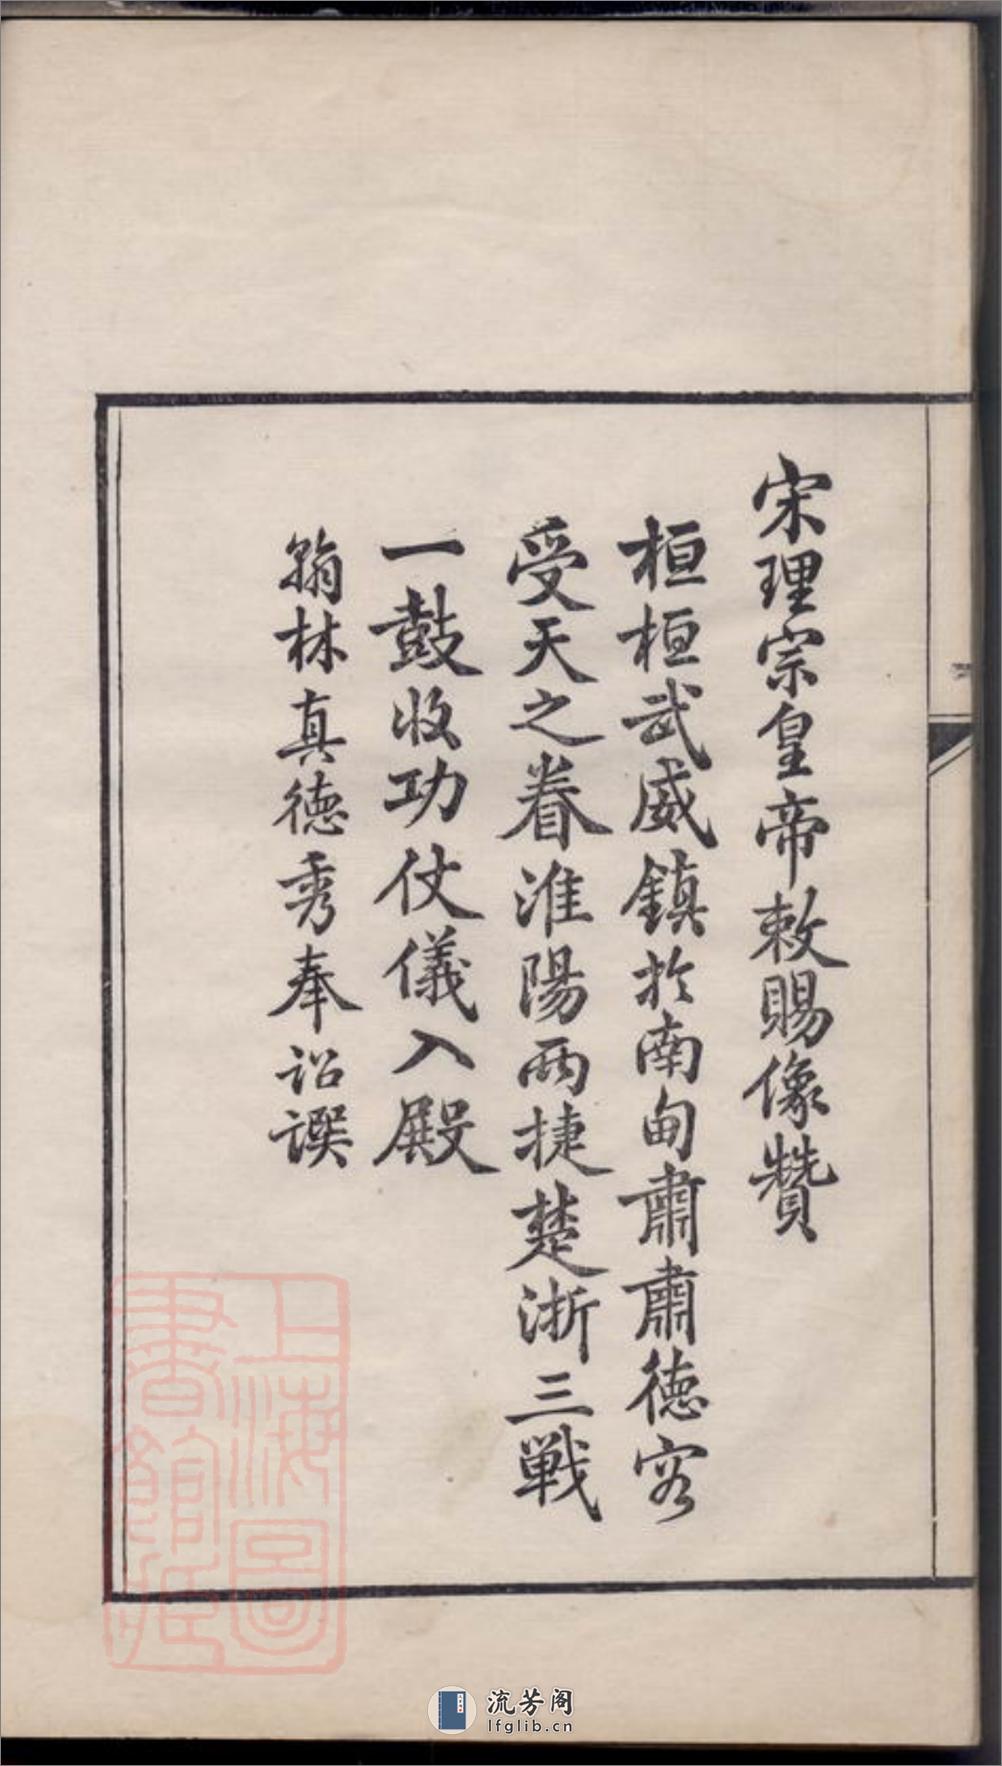 宋理宗皇帝敕賜像贊
桓桓武威鎮於南甸肅肅德容
受天之眷淮陽兩捷楚浙三戰
一鼓收功仗儀入殿
翰林真德秀奉詔譔
上海圖
書館藏
流芳阁
lfglib.cn